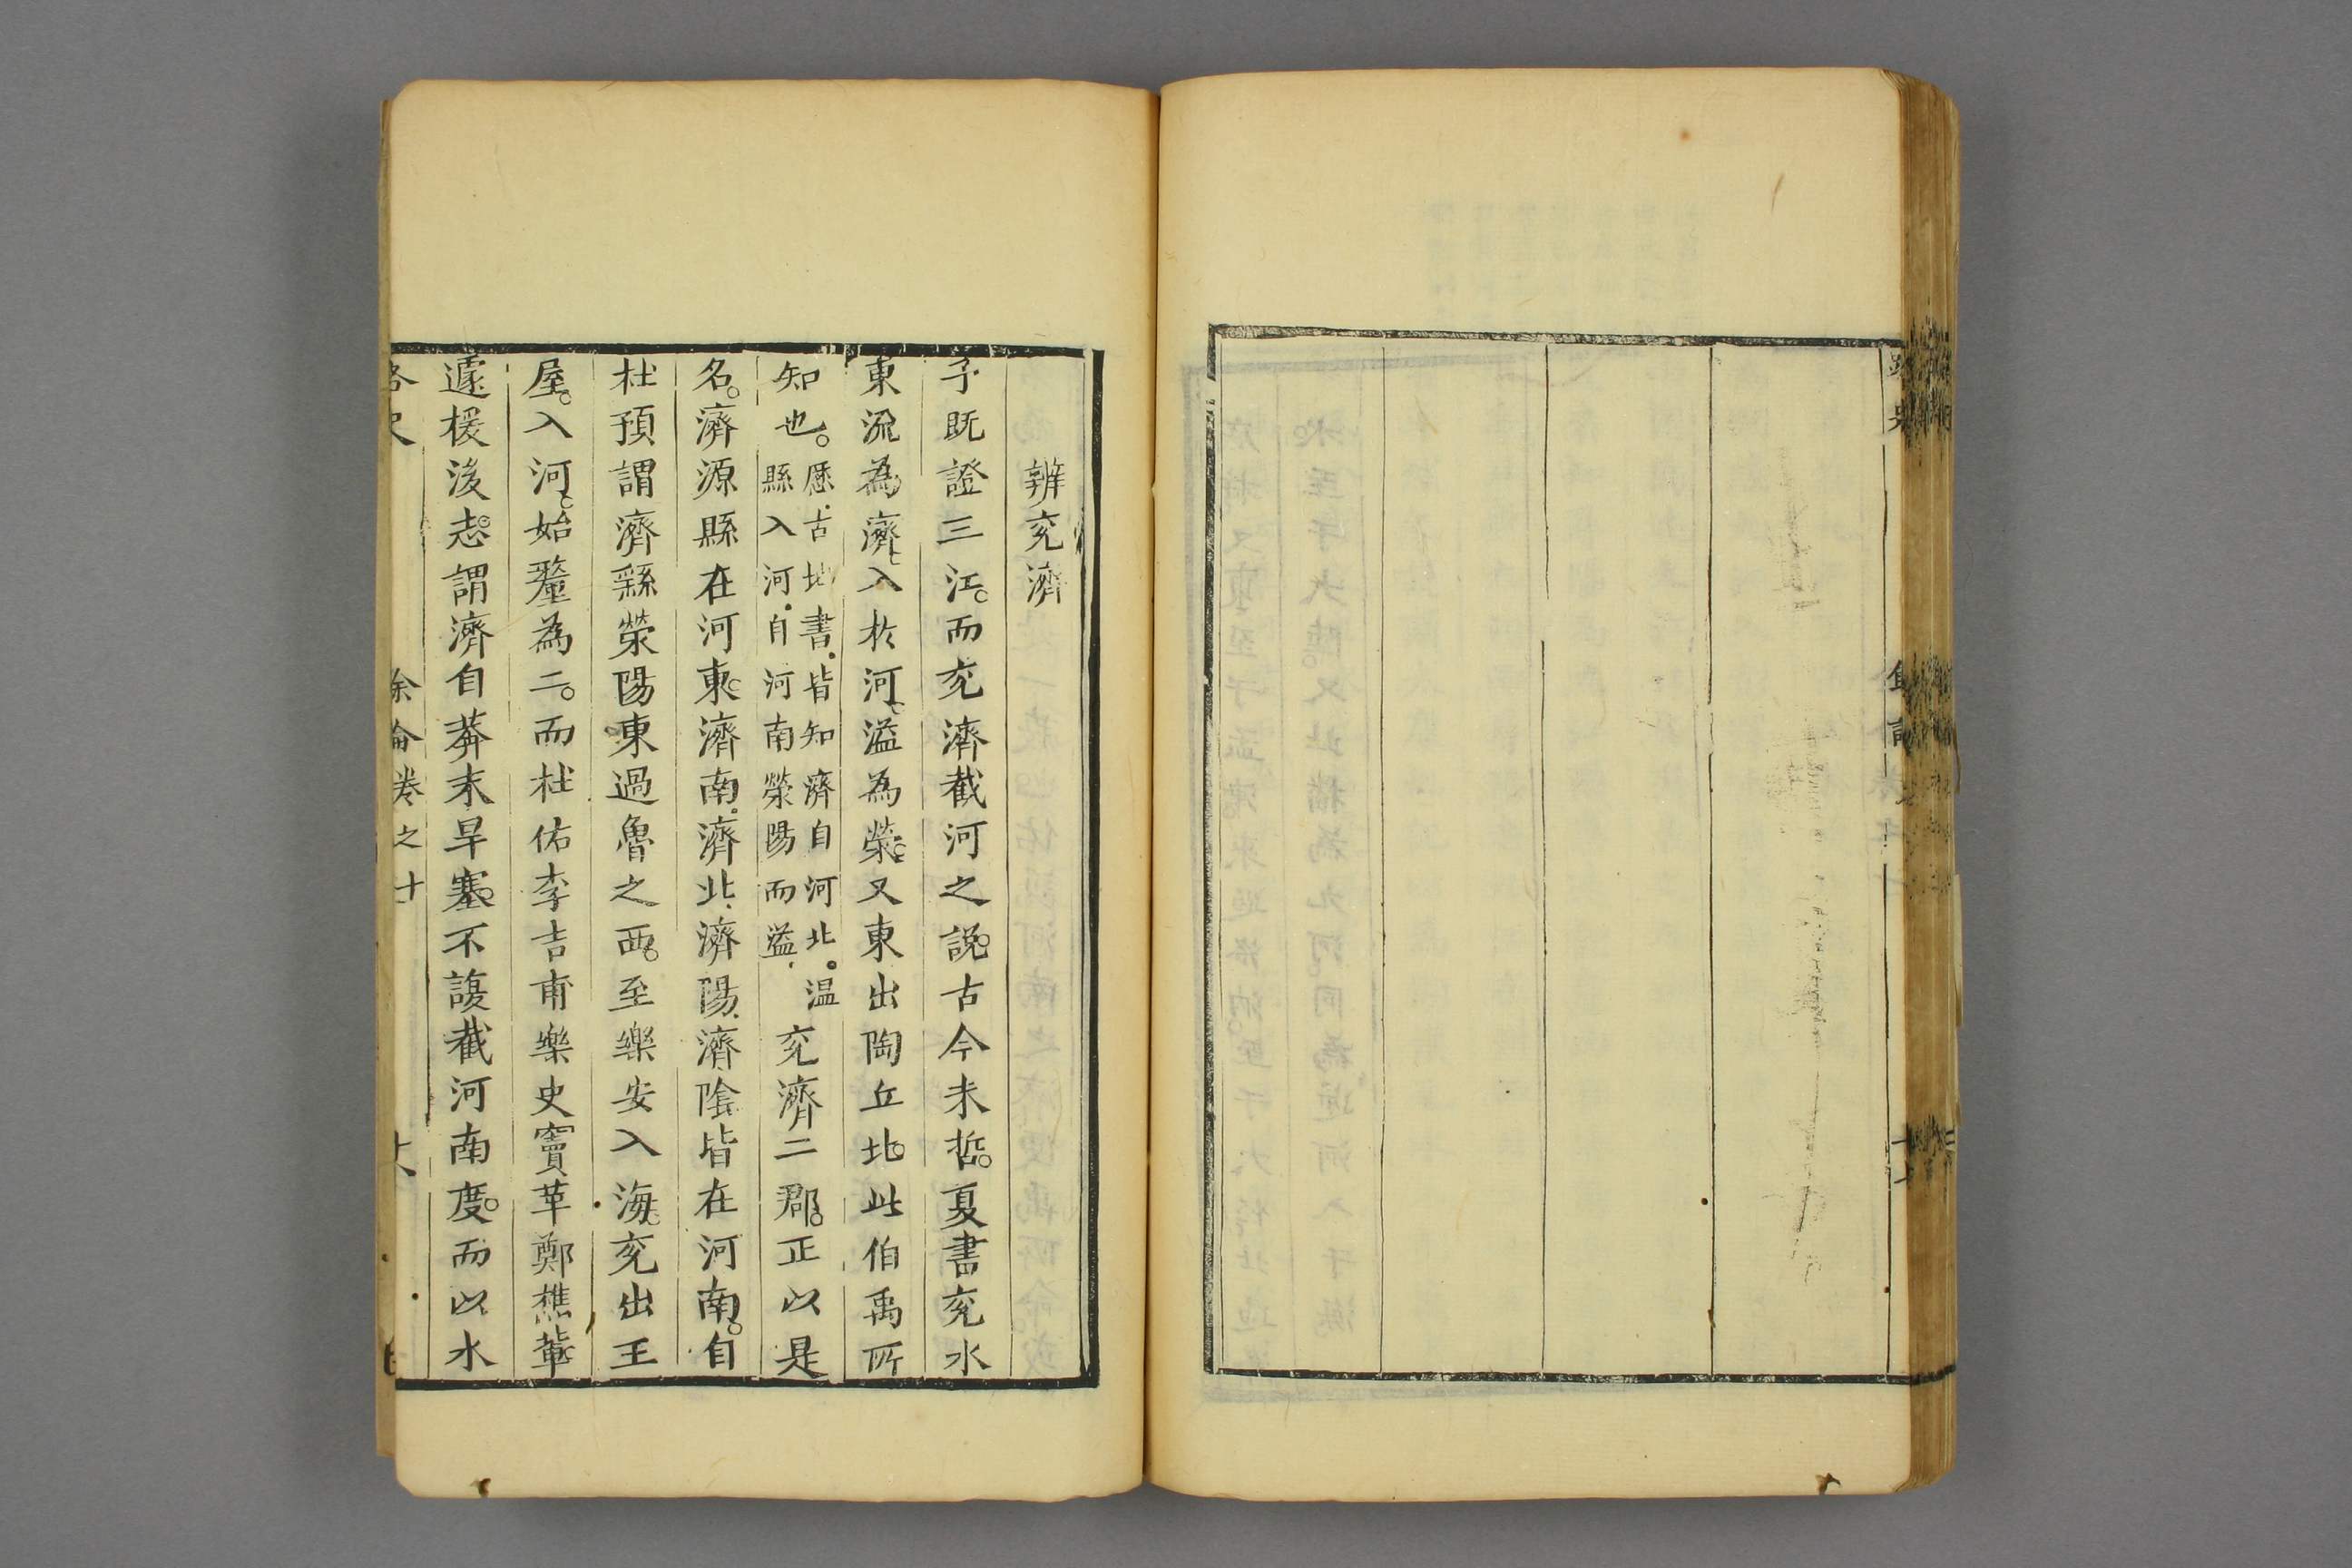 辨兖濟
予既證三江。而兖濟截河之說。古今未晢。夏書兖水
東流為濟。入於河。溢為滎。又東出陶丘北。此伯禹所
知也。歷古地書。皆知濟自河北。温縣入河。自河南滎陽而溢。兖濟二郡。正以是
名。濟源縣在河東。濟南。濟北。濟陽。濟陰皆在河南。自
杜預謂濟繇滎陽東過魯之西。至樂安入海。兖出王
屋。入河。始釐為二。而杜佑李吉甫樂史竇苹鄭樵輩
遽援後志。謂濟自莽末旱塞。不復截河南度。而以水
路史 餘論卷之十 十八